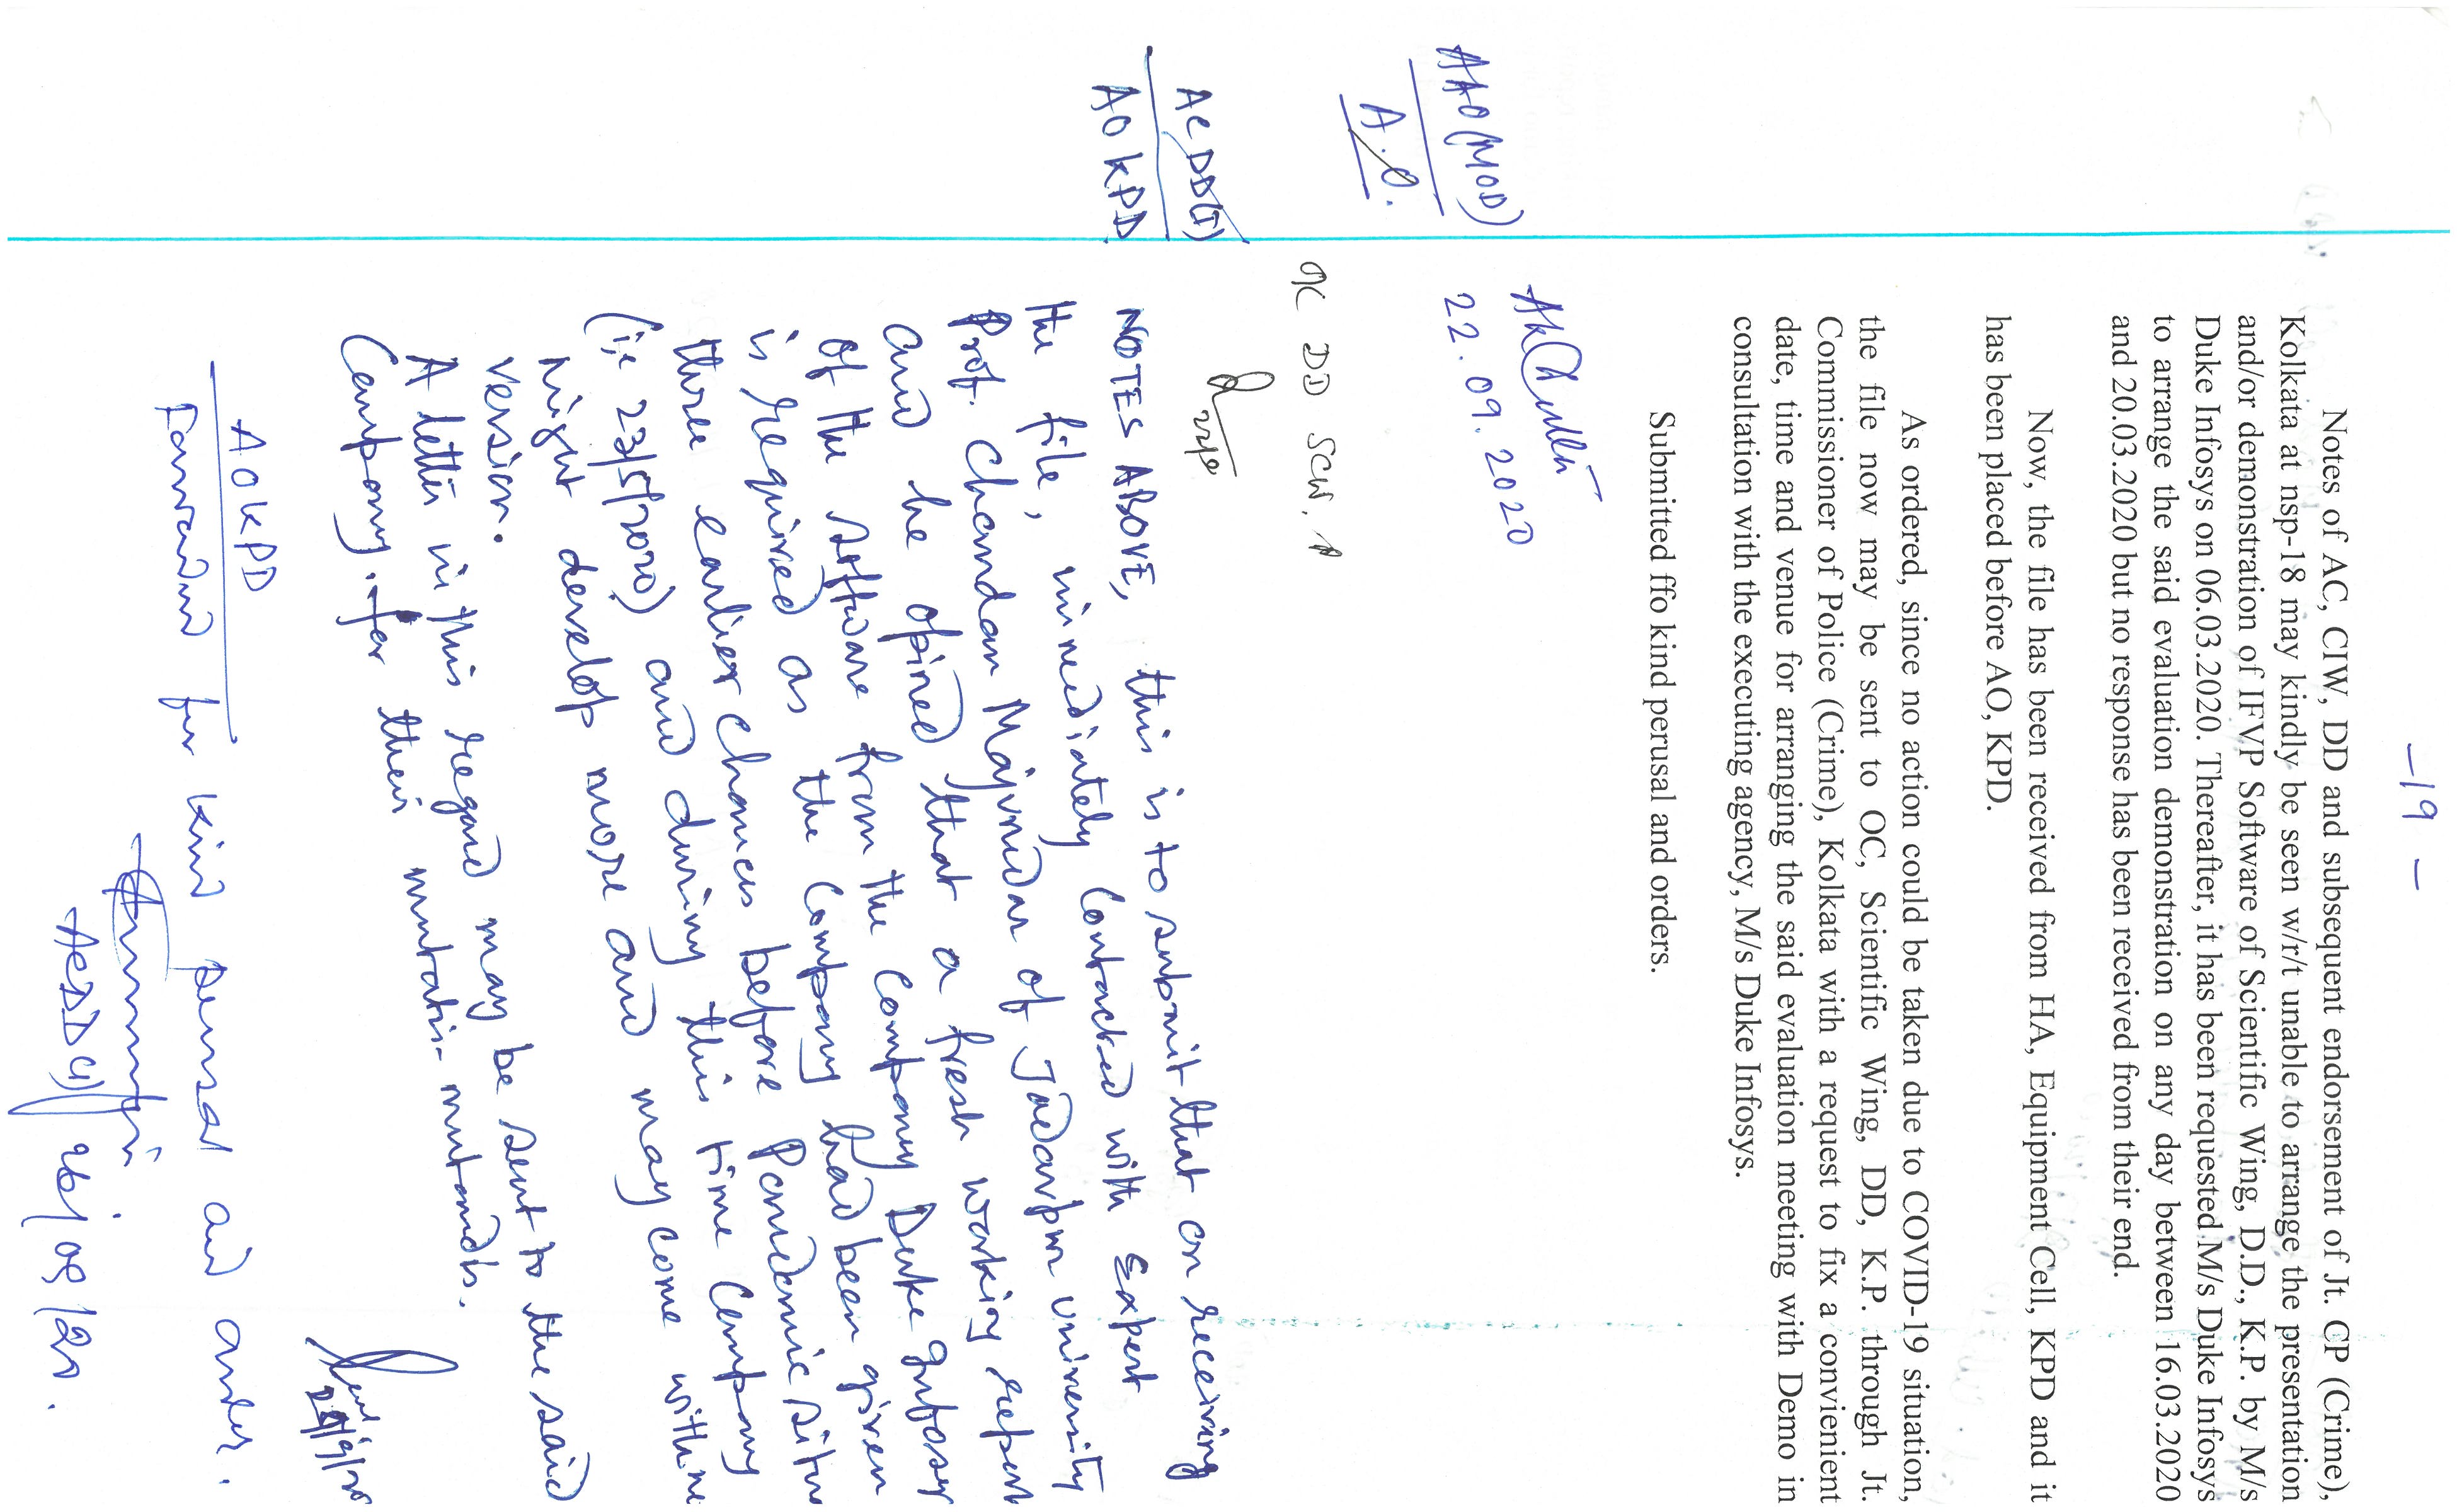 -19-
Notes of AC, CIW, DD and subsequent endorsement of Jt. CP (Crime),
Kolkata at nsp-18 may kindly be seen w/r/t unable to arrange the presentation
and/or demonstration of IFVP Software of Scientific Wing, D.D., K.P. by M/s
Duke Infosys on 06.03.2020. Thereafter, it has been requested M/s Duke Infosys
to arrange the said evaluation demonstration on any day between 16.03.2020
and 20.03.2020 but no response has been received from their end.
Now, the file has been received from HA, Equipment Cell, KPD and it
has been placed before AO, KPD.
As ordered, since no action could be taken due to COVID-19 situation,
the file now may be sent to OC, Scientific Wing, DD, K.P. through Jt.
Commissioner of Police (Crime), Kolkata with a request to fix a convienient
date, time and venue for arranging the said evaluation meeting with Demo in
consultation with the executing agency, M/s Duke Infosys.
Submitted ffo kind perusal and orders.
22.09.2020
AAO (MOD)
A.O.
DD SCW.
AC DD(I)
AO KPD
NOTES ABOVE, this is to submit that on receiving
the file, immediately Contacted with Expert
Prof. Chandan Majumdar of Jadavpur University
and he opined that a fresh working report
of the software from the Company Duke Infosy
is required as the Company had been given
three earlier chances before Pandemic situ
(i,e 23/5/2020) and during this time Company
might develop more and may come with ne
version.
A letter in this regard may be sent to the said
Company. for their mutatis-mutandis.
AO KPD
Forwarded for kind perusal and order.
ACDD(I) 26/09/20.